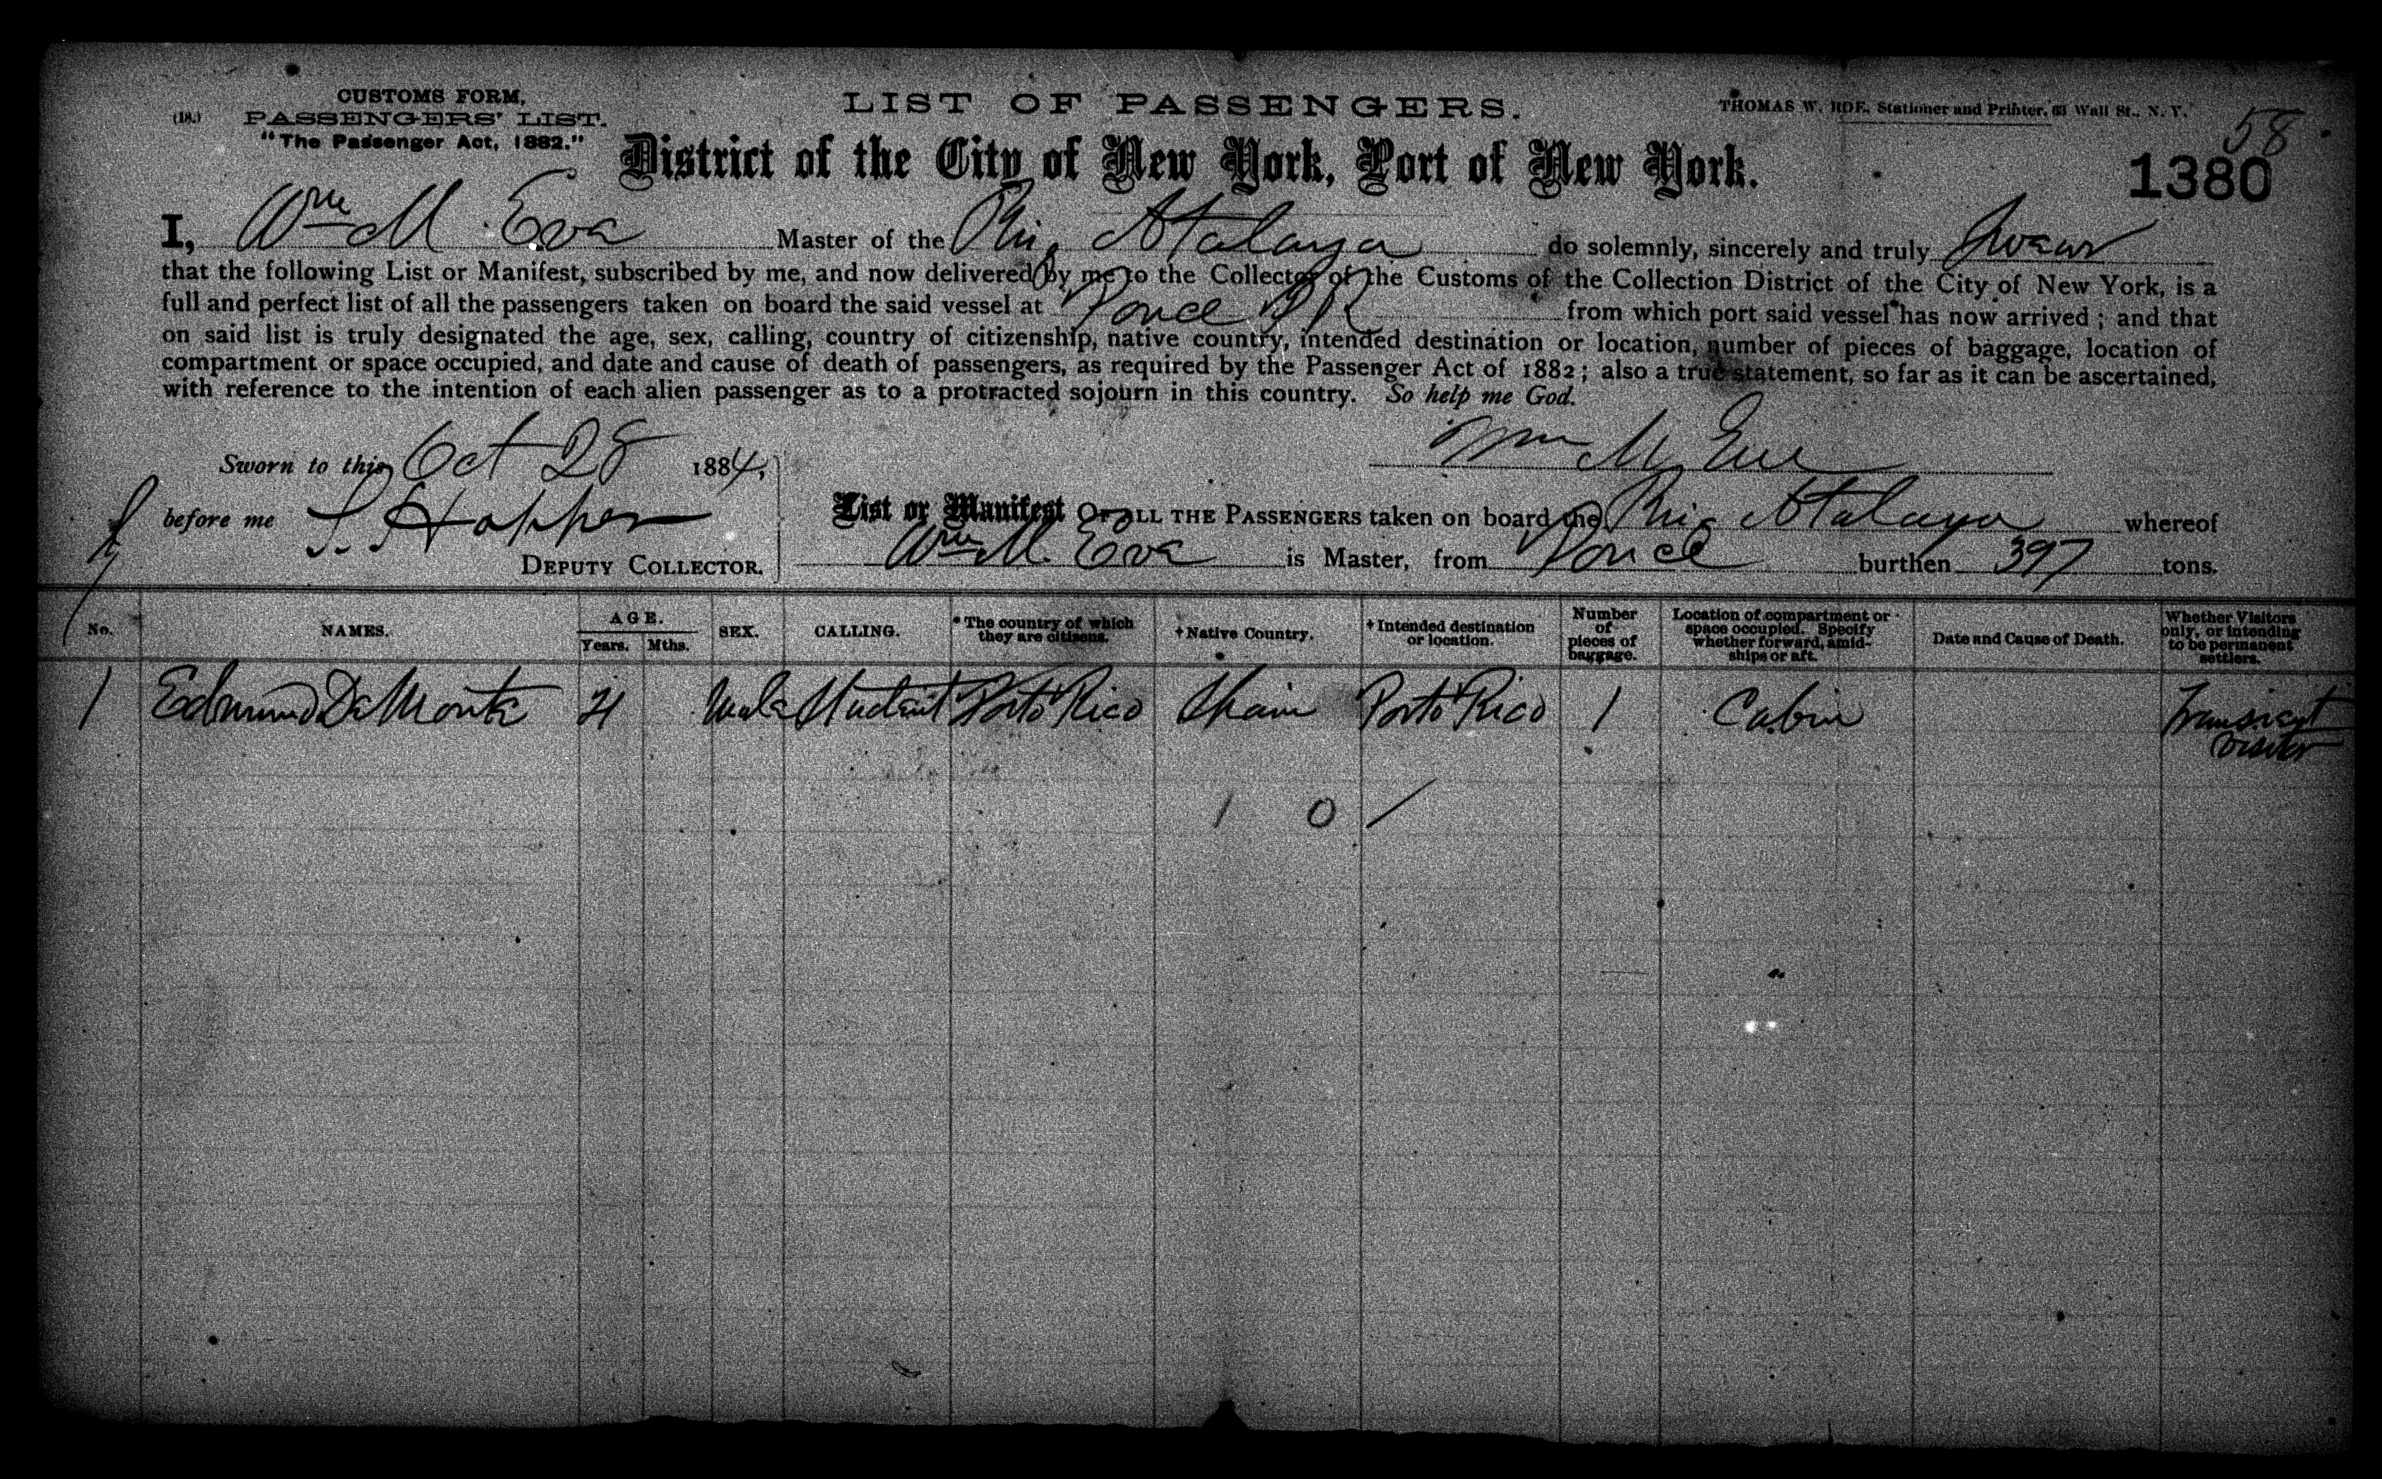 CUSTOMS FORM,
(18.) PASSENGERS' LIST.
"The Passenger Act, 1882."
LIST OF PASSENGERS.
THOMAS W. ROE, Stationer and Printer, 63 Wall St., N. Y.
58
District of the City of New York, Port of New York.
1380
I, Wm M Eva Master of the Atalaya do solemnly, sincerely and truly Swear
that the following List or Manifest, subscribed by me, and now delivered by me to the Collector of the Customs of the Collection District of the City of New York, is a
full and perfect list of all the passengers taken on board the said vessel at Ponce P R from which port said vessel has now arrived ; and that
on said list is truly designated the age, sex, calling, country of citizenship, native country, intended destination or location, number of pieces of baggage, location of
compartment or space occupied, and date and cause of death of passengers, as required by the Passenger Act of 1882 ; also a true statement, so far as it can be ascertained,
with reference to the intention of each alien passenger as to a protracted sojourn in this country. So help me God.
Sworn to this Oct 28 1884,
Wm M Eva
before me Hopper
DEPUTY COLLECTOR.
List or Manifest OF ALL THE PASSENGERS taken on board the Atalaya whereof
Wm M. Eva is Master, from Ponce burthen 397 tons.
No. NAMES. AGE. Years. Mths. SEX. CALLING. * The country of which they are citizens. † Native Country. † Intended destination or location. Number of pieces of baggage. Location of compartment or space occupied. Specify whether forward, amidships or aft. Date and Cause of Death. Whether Visitors only, or intending to be permanent settlers.
1 Edmund De Monta 21 Male Student Porto Rico Spain Porto Rico 1 Cabin Transient
visitor
1 0 /